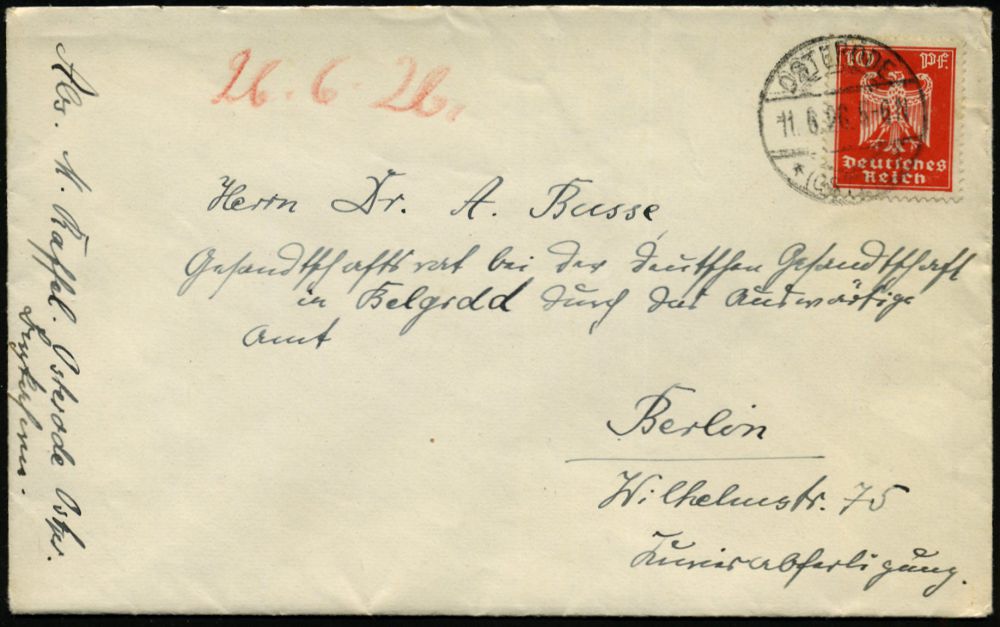 26. 6. 26.
OSTERODE
11. 6. 26. 5-6 N
10 Pf
Deutsches
Reich
Herrn Dr. A. Busse,
Gesandtschaftsrat bei der deutschen Gesandtschaft
in Belgrad durch das Auswärtige
Amt
Berlin
Wilhelmstr. 75
Kurierabfertigung.
Abs. M. Osterode Ostpr.